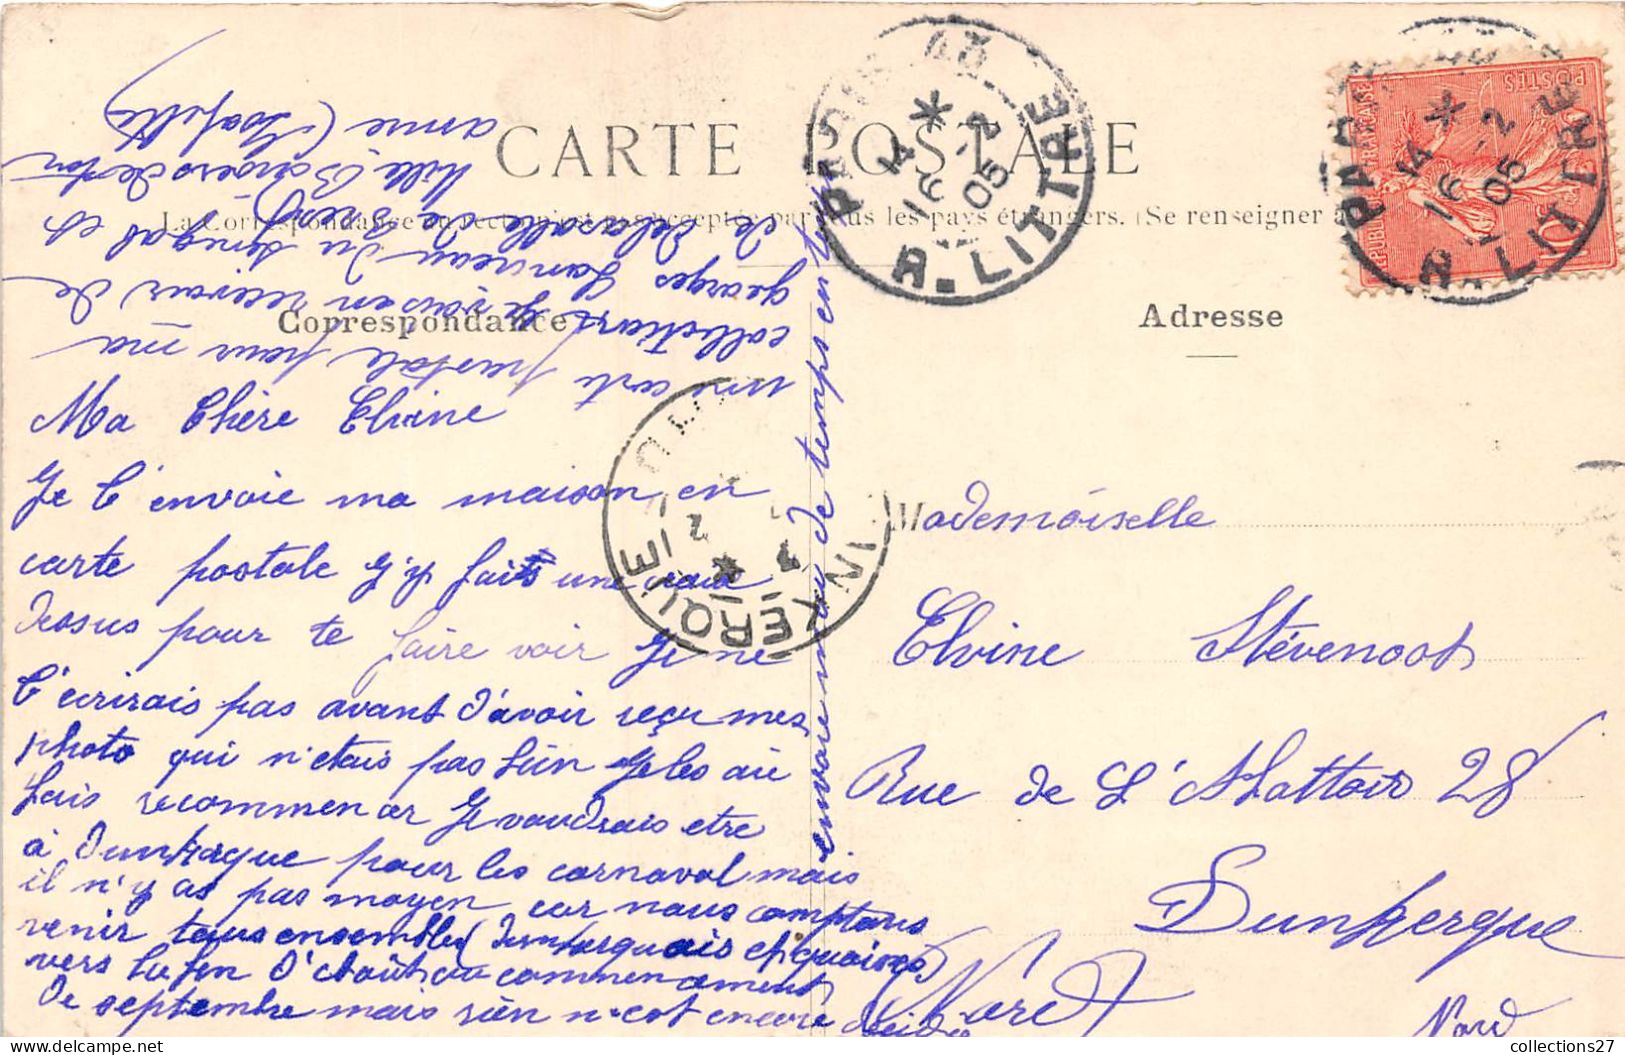 CARTE POSTALE
La Correspondance au recto n'est pas acceptée par tous les pays étrangers. (Se renseigner à
Correspondance
Ma Chère Elvine
Je t'envoie ma maison en
carte postale J'y fait une croix
dessus pour te faire voir Je ne
t'écrirais pas avant d'avoir reçu mes
photo qui n'étais pas bien Je les ai
fais recommencer Je voudrais etre
à Dunkerque pour les carnaval mais
il n'y as pas moyen car nous comptons
venir tous ensembles (dunkerquois et
vers la fin d'Août ou commencement
de septembre mais rien n'est encore décidé
envoie moi de temps en temps
une carte postale pour ma
collections Je viens en recevoir de
georges Lancreau du Senegal et
de delasalle de Brest
Mille Baisers de ton
amie
Adresse
Mademoiselle
Elvine Stévenoot
Rue de L'Abattoir 28
Dunkerque
Nord
Nord
PARIS 43
14 * 2
16 05
R. LITTRE
PARIS
14 * 2
16 05
R. LITTRE
REPUBLIQUE FRANÇAISE
POSTES
10
DUNKERQUE
collections27